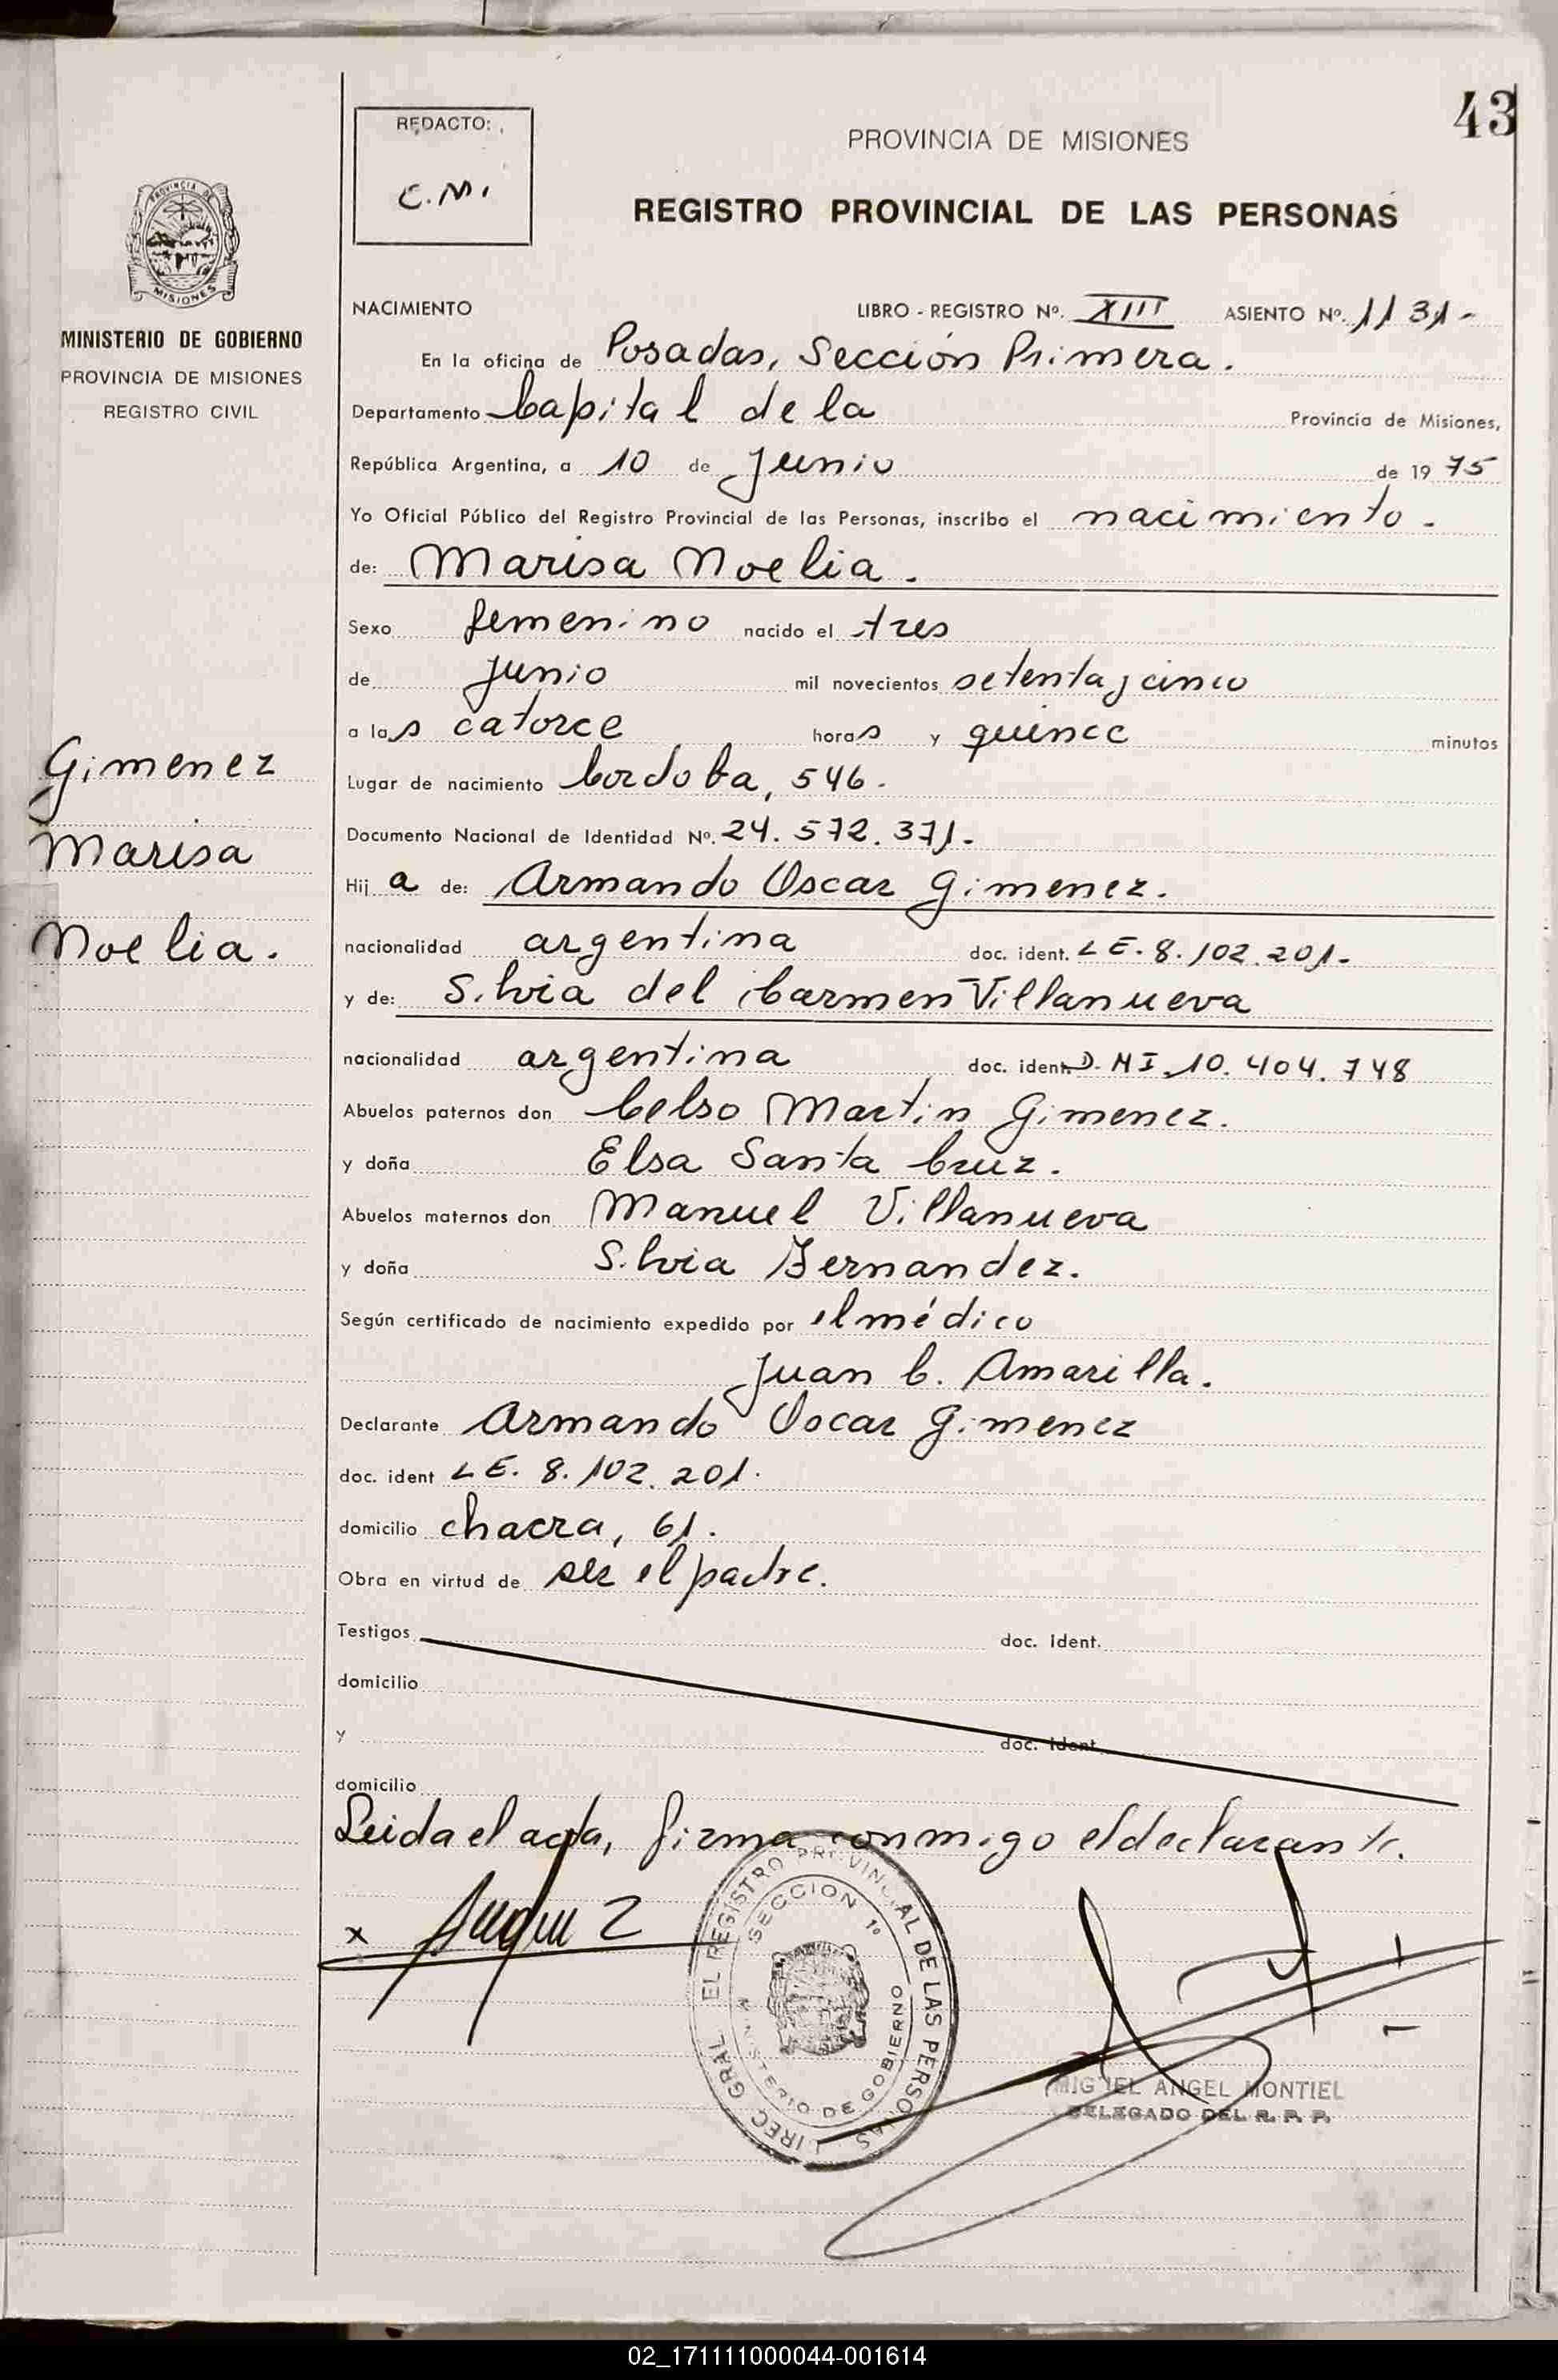 43
REDACTO:
C.M.
PROVINCIA DE MISIONES
REGISTRO PROVINCIAL DE LAS PERSONAS
PROVINCIA DE
MISIONES
MINISTERIO DE GOBIERNO
PROVINCIA DE MISIONES
REGISTRO CIVIL
NACIMIENTO LIBRO - REGISTRO Nº. XIII ASIENTO Nº. 1131-
En la oficina de Posadas, Sección Primera.
Departamento Capital de la Provincia de Misiones,
República Argentina, a 10 de Junio de 1975
Yo Oficial Público del Registro Provincial de las Personas, inscribo el nacimiento.
de: Marisa Noelia.
Sexo femenino nacido el tres
de junio mil novecientos setenta y cinco
a las catorce horas y quince minutos
Gimenez
Marisa
Noelia.
Lugar de nacimiento Cordoba, 546.
Documento Nacional de Identidad Nº. 24.572.371.
Hija de: Armando Oscar Gimenez.
nacionalidad argentina doc. ident. LE. 8.102.201.
y de: Silvia del Carmen Villanueva
nacionalidad argentina doc. ident. D.NI. 10.404.748
Abuelos paternos don Celso Martin Gimenez.
y doña Elsa Santa Cruz.
Abuelos maternos don Manuel Villanueva
y doña Silvia Fernandez.
Según certificado de nacimiento expedido por el médico
Juan C. Amarilla.
Declarante Armando Oscar Gimenez
doc. ident LE. 8.102.201.
domicilio chacra, 61.
Obra en virtud de ser el padre.
Testigos doc. Ident.
domicilio
y doc. Ident.
domicilio
Leida el acta, firma conmigo el declarante.
x
DIREC. GRAL. EL REGISTRO PROVINCIAL DE LAS PERSONAS
SECCION 1º
MINISTERIO DE GOBIERNO
MIGUEL ANGEL MONTIEL
DELEGADO DEL R. P. P.
02_171111000044-001614